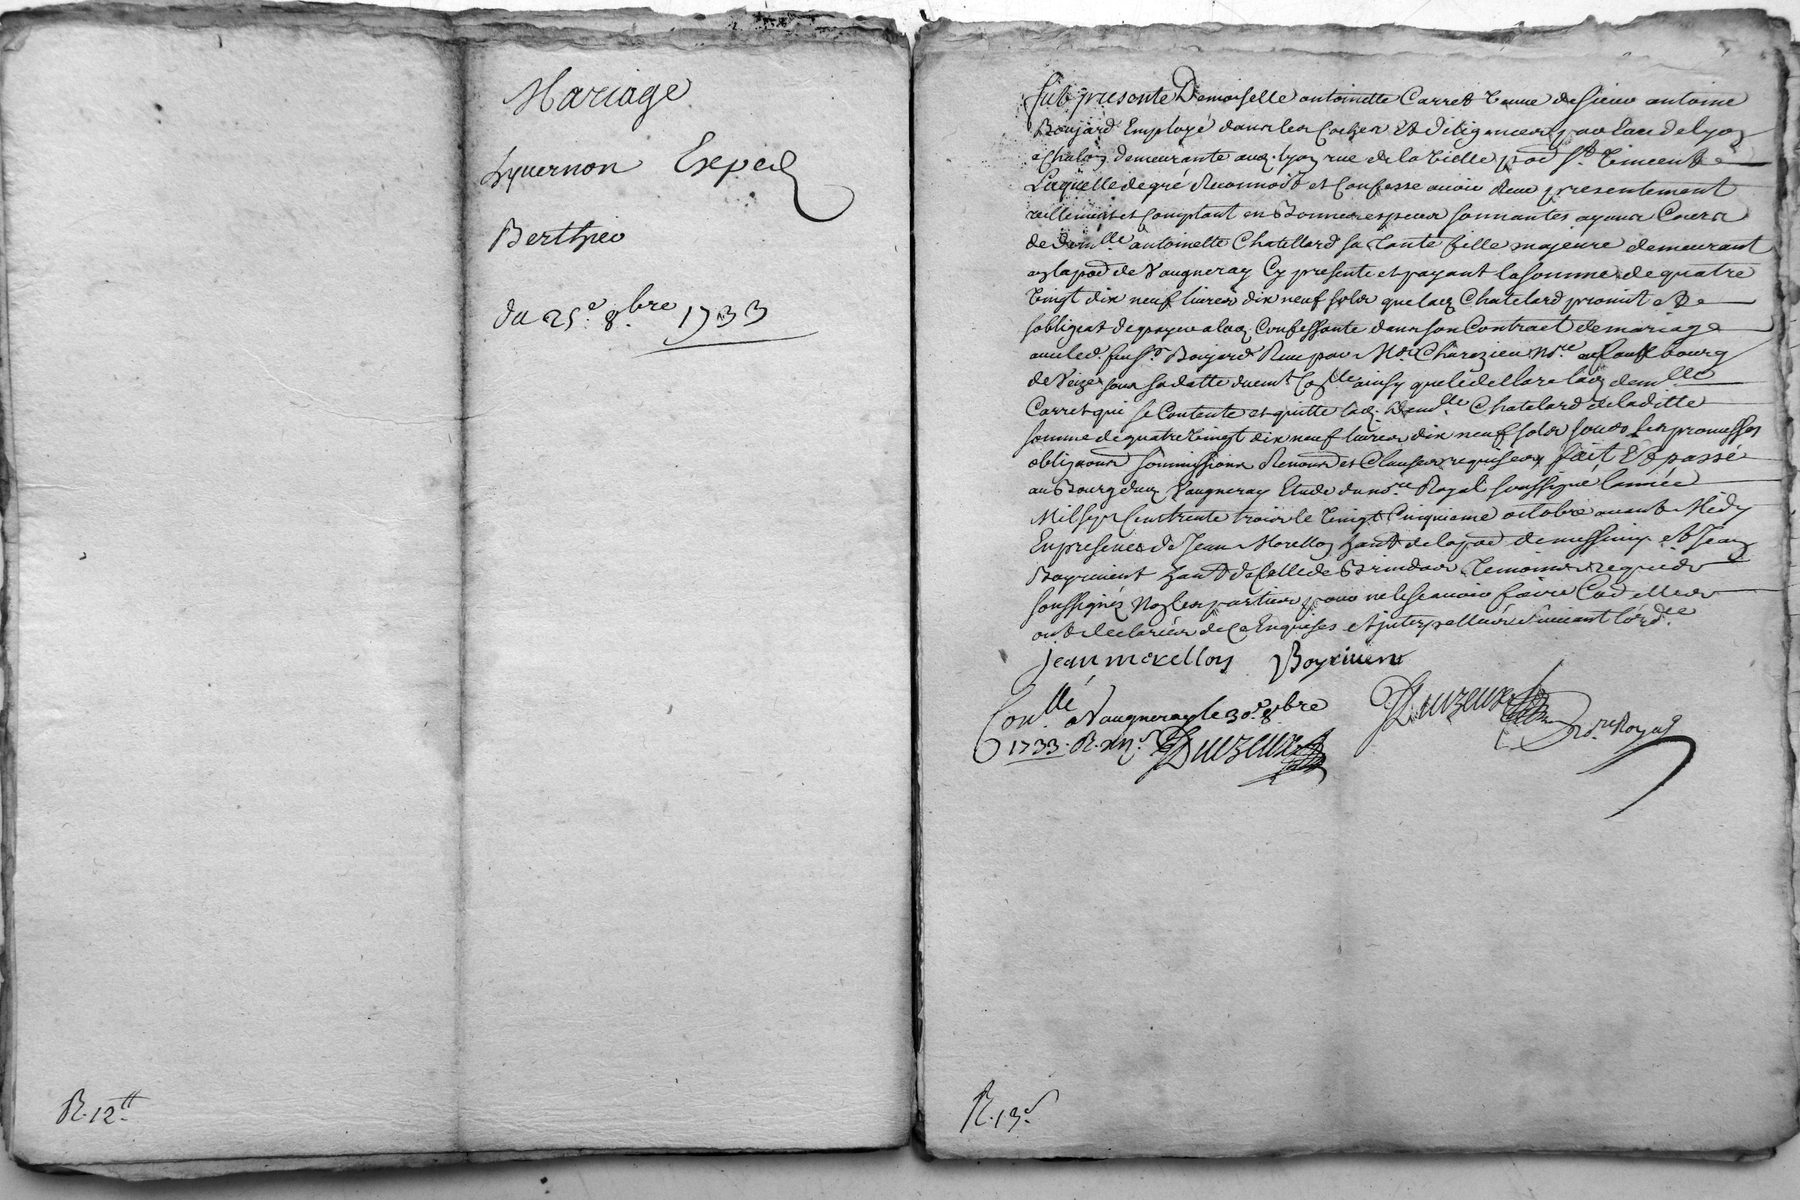 Mariage
hyvernon Exped
Berthier
du 25e 8bre 1733
R. 12tt
fut presente Demoiselle antoinette Carret veuve de sieur antoine
Boujard Employé dans les Coches Et diligences par Eau de lyon
a Chalon demeurante aud. lyon rue de la vielle parr St Vincent
Laquelle de gré Reconnoist et Confesse avoir Reçu presentement
reellement et Comptant en Bonnes especes sonnantes ayans Cours
de demlle antoinette Chatellard sa tante fille majeure demeurant
en la par de Vaugneray Cy presente et payant la somme de quatre
Vingt dix neuf livres dix neuf sols que lad. Chatelard promit Et
s'obligeat de payer a lad. Confessante dans son Contract de mariage
avec led. feu sr Boujard Reçu par Me Charezieu nore au fauxbourg
de Veize sous sa datte duemt Collé ainsy que le dellare lad. demlle
Carret qui se Contente et quitte lad. Demlle Chatelard de laditte
somme de quatre Vingt dix neuf livres dix neuf sols sous les promesses
obligaons soûmissions Renons et Clauses requises, fait Et passé
au Bourg dud. Vaugneray Etude du nore Royal soussigné l'année
Mil sept Cent trente trois le Vingt Cinquieme octobre avant Midy
En presence de Jean Morellon hant de la par de messimy et Jean
Boyrivent hant de Celle de Brindas temoins requis
soussignés Non les parties pour ne le sçavoir faire Comme elles
ont declarées de Ce Enquises et interpellées suivant l'ordce
jean morellon Boyrivent
Conllé a Vaugneray le 30e 8bre
1733. R. xiii s Duzeux
Duzeux nre Royal
R. 13s